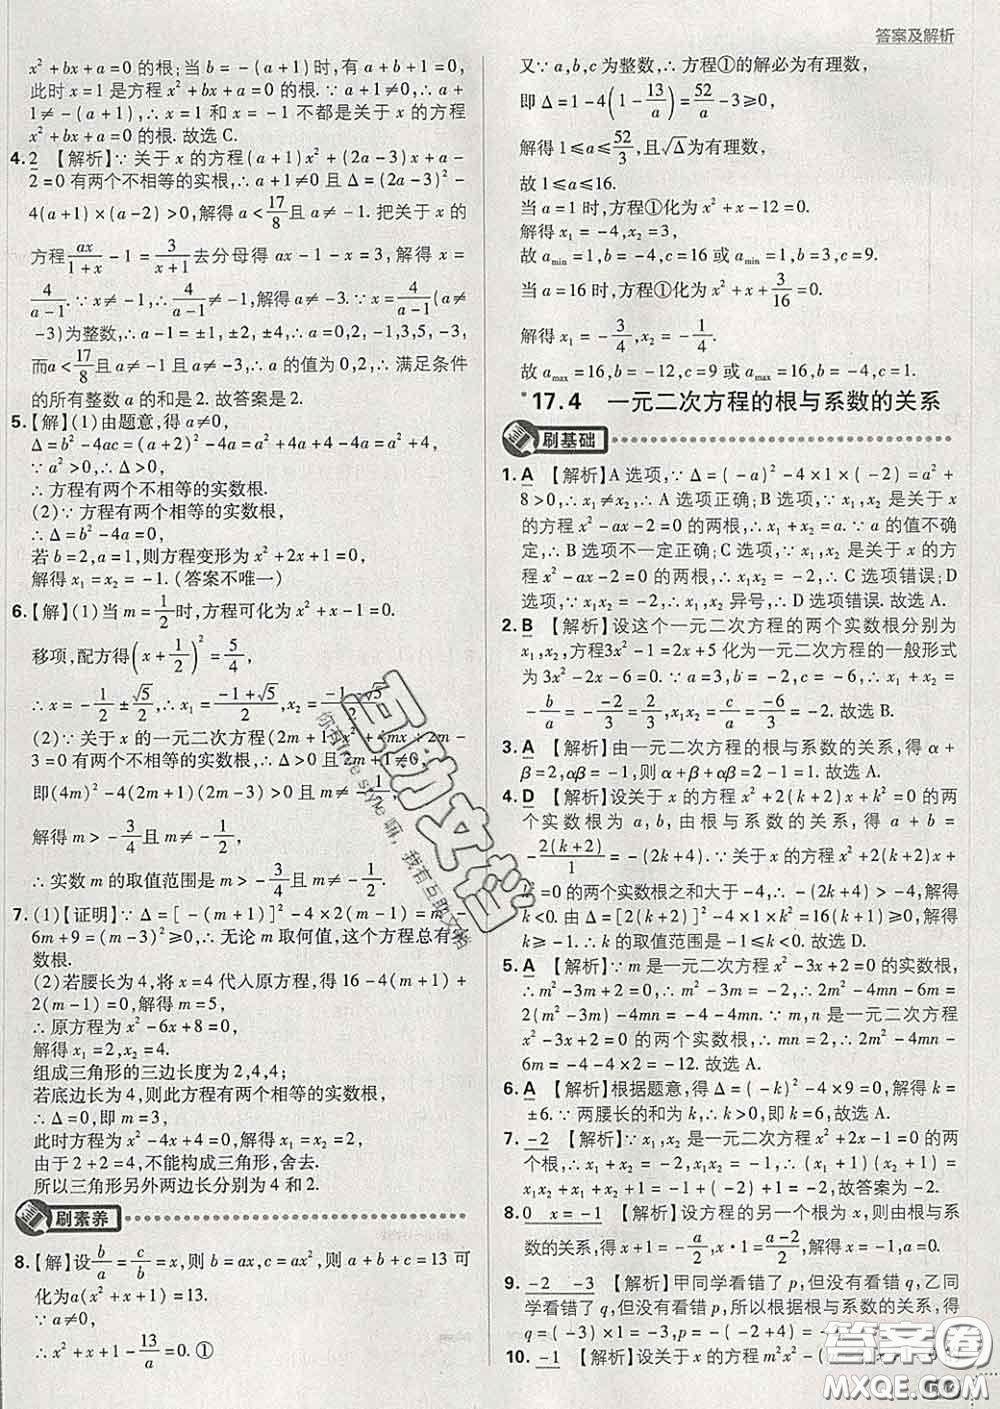 答案及解析
x²+bx+a=0的根;当b=-(a+1)时,有a+b+1=0,
此时x=1是方程x²+bx+a=0的根.∵a+1≠0,∴a+
1≠-(a+1),∴x=1和x=-1不都是关于x的方程
x²+bx+a=0的根.故选C.
4. 2 【解析】∵关于x的方程(a+1)x²+(2a-3)x+a-
2=0有两个不相等的实根,∴a+1≠0且Δ=(2a-3)²-
4(a+1)×(a-2)>0,解得a<17/8且a≠-1.把关于x的
方程ax/(1+x)-1=3/(x+1)去分母得ax-1-x=3,解得x=
4/(a-1).∵x≠-1,∴4/(a-1)≠-1,解得a≠-3.∵x=4/(a-1)(a≠
-3)为整数,∴a-1=±1,±2,±4,∴a=0,2,-1,3,5,-3,
而a<17/8且a≠-1且a≠-3,∴a的值为0,2,∴满足条件
的所有整数a的和是2.故答案是2.
5.【解】(1)由题意,得a≠0,
Δ=b²-4ac=(a+2)²-4a=a²+4a+4-4a=a²+4,
∵a²>0,∴Δ>0,
∴方程有两个不相等的实数根.
(2)∵方程有两个相等的实数根,
∴Δ=b²-4a=0,
若b=2,a=1,则方程变形为x²+2x+1=0,
解得x₁=x₂=-1.(答案不唯一)
6.【解】(1)当m=1/2时,方程可化为x²+x-1=0.
移项,配方得(x+1/2)²=5/4,
∴x=-1/2±√5/2,∴x₁=(-1+√5)/2,x₂=
(2)∵关于x的一元二次方程(2m+1)x²+4mx+2m-
3=0有两个不相等的实数根,∴Δ>0且2m+1≠0,
即(4m)²-4×(2m+1)(2m-3)>0且m≠-1/2.
解得m>-3/4且m≠-1/2,
∴实数m的取值范围是m>-3/4且m≠-1/2.
7.(1)【证明】∵Δ=[-(m+1)]²-4×2(m-1)=m²-
6m+9=(m-3)²≥0,∴无论m取何值,这个方程总有实
数根.
(2)若腰长为4,将x=4代入原方程,得16-4(m+1)+
2(m-1)=0,解得m=5,
∴原方程为x²-6x+8=0,
解得x₁=2,x₂=4.
组成三角形的三边长度为2,4,4;
若底边长为4,则此方程有两个相等的实数根,
∴Δ=0,即m=3,
此时方程为x²-4x+4=0,解得x₁=x₂=2,
由于2+2=4,不能构成三角形,舍去.
所以三角形另外两边长分别为4和2.
刷素养
8.【解】设b/a=c/b=x,则b=ax,c=ax²,则a+b+c=13可
化为a(x²+x+1)=13.
∵a≠0,
∴x²+x+1-13/a=0.①
又∵a,b,c为整数,∴方程①的解必为有理数,
即Δ=1-4(1-13/a)=52/a-3≥0,
解得1≤a≤52/3,且√Δ为有理数,
故1≤a≤16.
当a=1时,方程①化为x²+x-12=0.
解得x₁=-4,x₂=3,
故a min=1,b=-4,c=16或a min=1,b=3,c=9.
当a=16时,方程①化为x²+x+3/16=0.
解得x₁=-3/4,x₂=-1/4.
故a max=16,b=-12,c=9或a max=16,b=-4,c=1.
*17.4 一元二次方程的根与系数的关系
刷基础
1. A 【解析】A选项,∵Δ=(-a)²-4×1×(-2)=a²+
8>0,∴x₁≠x₂,∴A选项正确;B选项,∵x₁,x₂是关于x
的方程x²-ax-2=0的两根,∴x₁+x₂=a.∵a的值不确
定,∴B选项不一定正确;C选项,∵x₁,x₂是关于x的方
程x²-ax-2=0的两根,∴x₁x₂=-2,∴C选项错误;D
选项,∵x₁x₂=-2,∴x₁,x₂异号,∴D选项错误.故选A.
2. B 【解析】设这个一元二次方程的两个实数根分别为
x₁,x₂,方程3x²-1=2x+5化为一元二次方程的一般形式
为3x²-2x-6=0.∵a=3,b=-2,c=-6,∴x₁+x₂=
-b/a=-(-2)/3=2/3,x₁x₂=c/a=-6/3=-2.故选B.
3. A 【解析】由一元二次方程的根与系数的关系,得α+
β=2,αβ=-1,则α+β+αβ=2-1=1.故选A.
4. D 【解析】设关于x的方程x²+2(k+2)x+k²=0的两
个实数根为a,b,由根与系数的关系,得a+b=
-2(k+2)/1=-2k-4=-2(k+2).∵关于x的方程x²+2(k+2)x+
k²=0的两个实数根之和大于-4,∴-2(k+4)>-4,解得
k<0.由Δ=[2(k+2)]²-4×1×k²=16(k+1)≥0,解得
k≥-1.∴k的取值范围是-1≤k<0.故选D.
5. A 【解析】∵m是一元二次方程x²-3x+2=0的实数根,
∴m²-3m+2=0,∴m²-3m=-2.∵m,n是一元二次方程
x²-3x+2=0的两个实数根,∴mn=2,∴2m²-4mn-
6m=2(m²-3m)-4mn=2×(-2)-4×2=-12.故选A.
6. A 【解析】根据题意,得Δ=(-k)²-4×9=0,解得k=
±6.∵两腰长的和为k,∴k>0,∴k=6.故选A.
7. -2 【解析】∵x₁,x₂是一元二次方程x²+2x-1=0的两
个根,∴x₁+x₂=-2,x₁x₂=-1,
8. 0 x=-1 【解析】设方程的另一个根为x,则由根与系
数的关系,得x+1=-a/2,x·1=(a-2)/2,解得x=-1,a=0.
9. -2 -3 【解析】甲同学看错了p,但没有看错q,乙同
学看错了q,但没有看错p,所以根据根与系数的关系,得
q=(-3)×1=-3,p=-(-2+4)=-2.
10. -1 【解析】设关于x的方程
答案圈
MXQE.COM